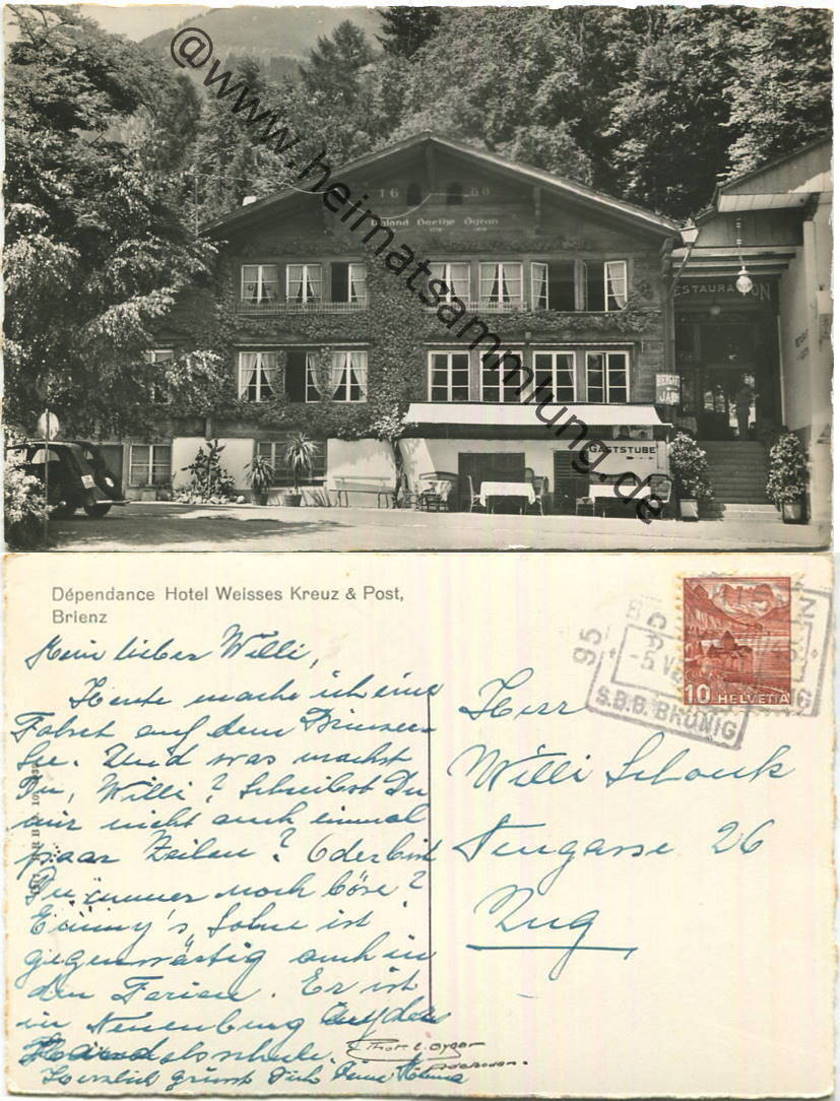 @www.heimatsammlung.de
16 88
Goethe Byron
RESTAURATION
GASTSTUBE
Dépendance Hotel Weisses Kreuz & Post,
Brienz
Mein lieber Willi,
Heute mache ich eine
Fahrt auf dem Brienzer-
See. Und was machst
Du, Willi? Schreibst Du
mir nicht auch einmal
paar Zeilen? Oder bist
Du immer noch böse?
Emmy's Sohn ist
gegenwärtig auch in
den Ferien. Er ist
in Neuenburg auf der
Handelsschule.
Herzlich grüsst Dich Deine
Phot. E. Gyger
Adelboden.
95
-5.VII
S.B.B. BRÜNIG
10 HELVETIA
Herr
Willi Schenk
Neugasse 26
Zug